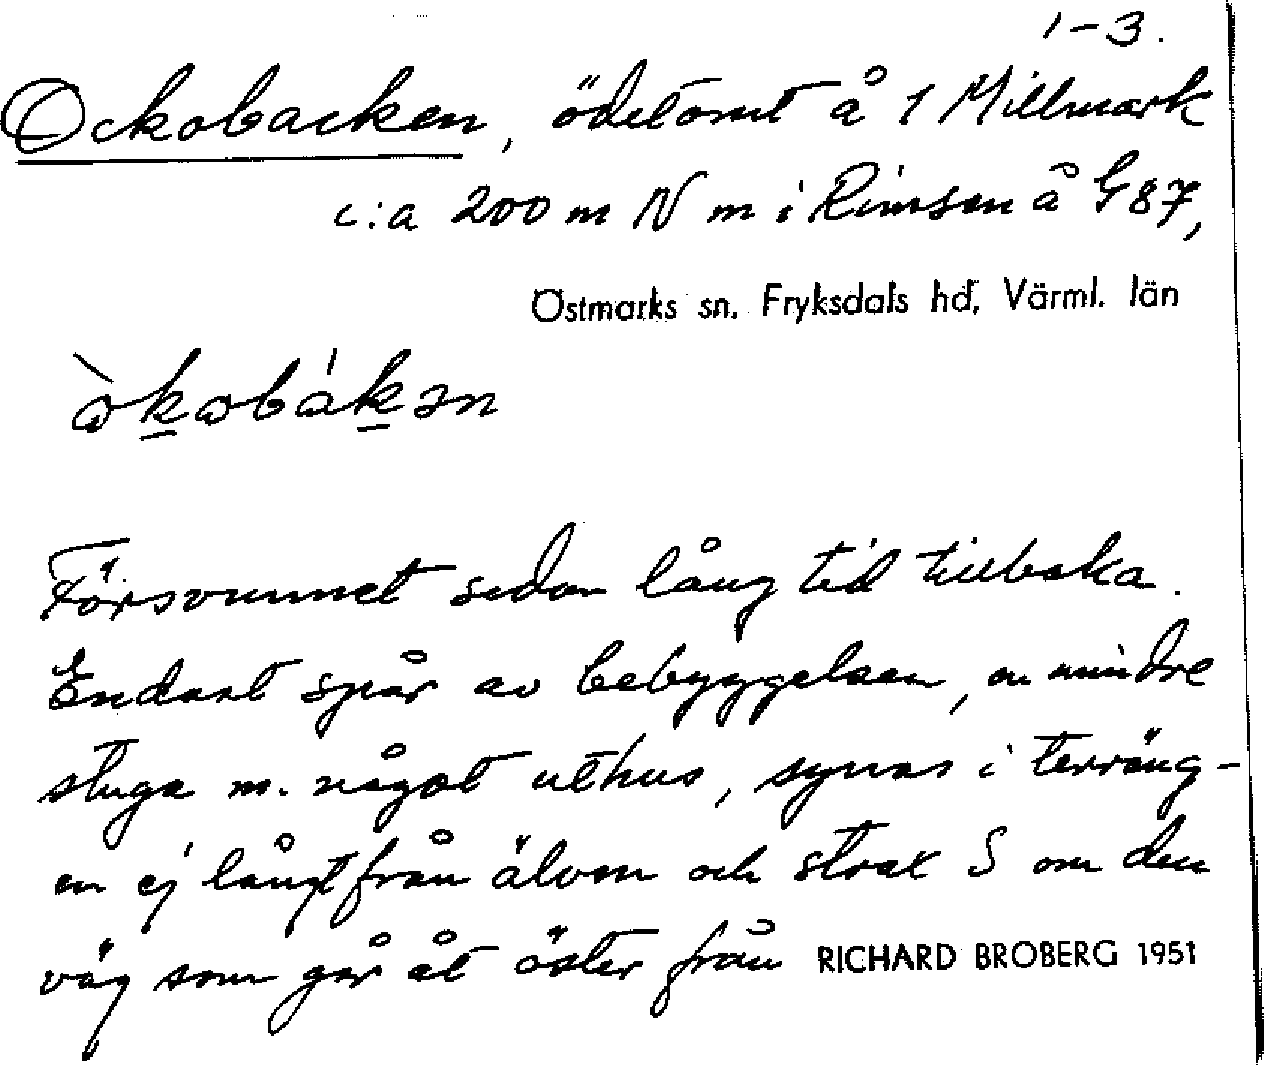 1-3.
Ockobacken, ödetomt å 1 Millmark
c:a 200 m N m i Rimsen å G 87,
Östmarks sn. Fryksdals hd, Värml. län
Försvunnet sedan lång tid tillbaka.
Endast spår av bebyggelsen, en mindre
stuga m. något uthus, synas i terräng-
en ej långt från älven och strax S om den
väg som går åt öster från RICHARD BROBERG 1951